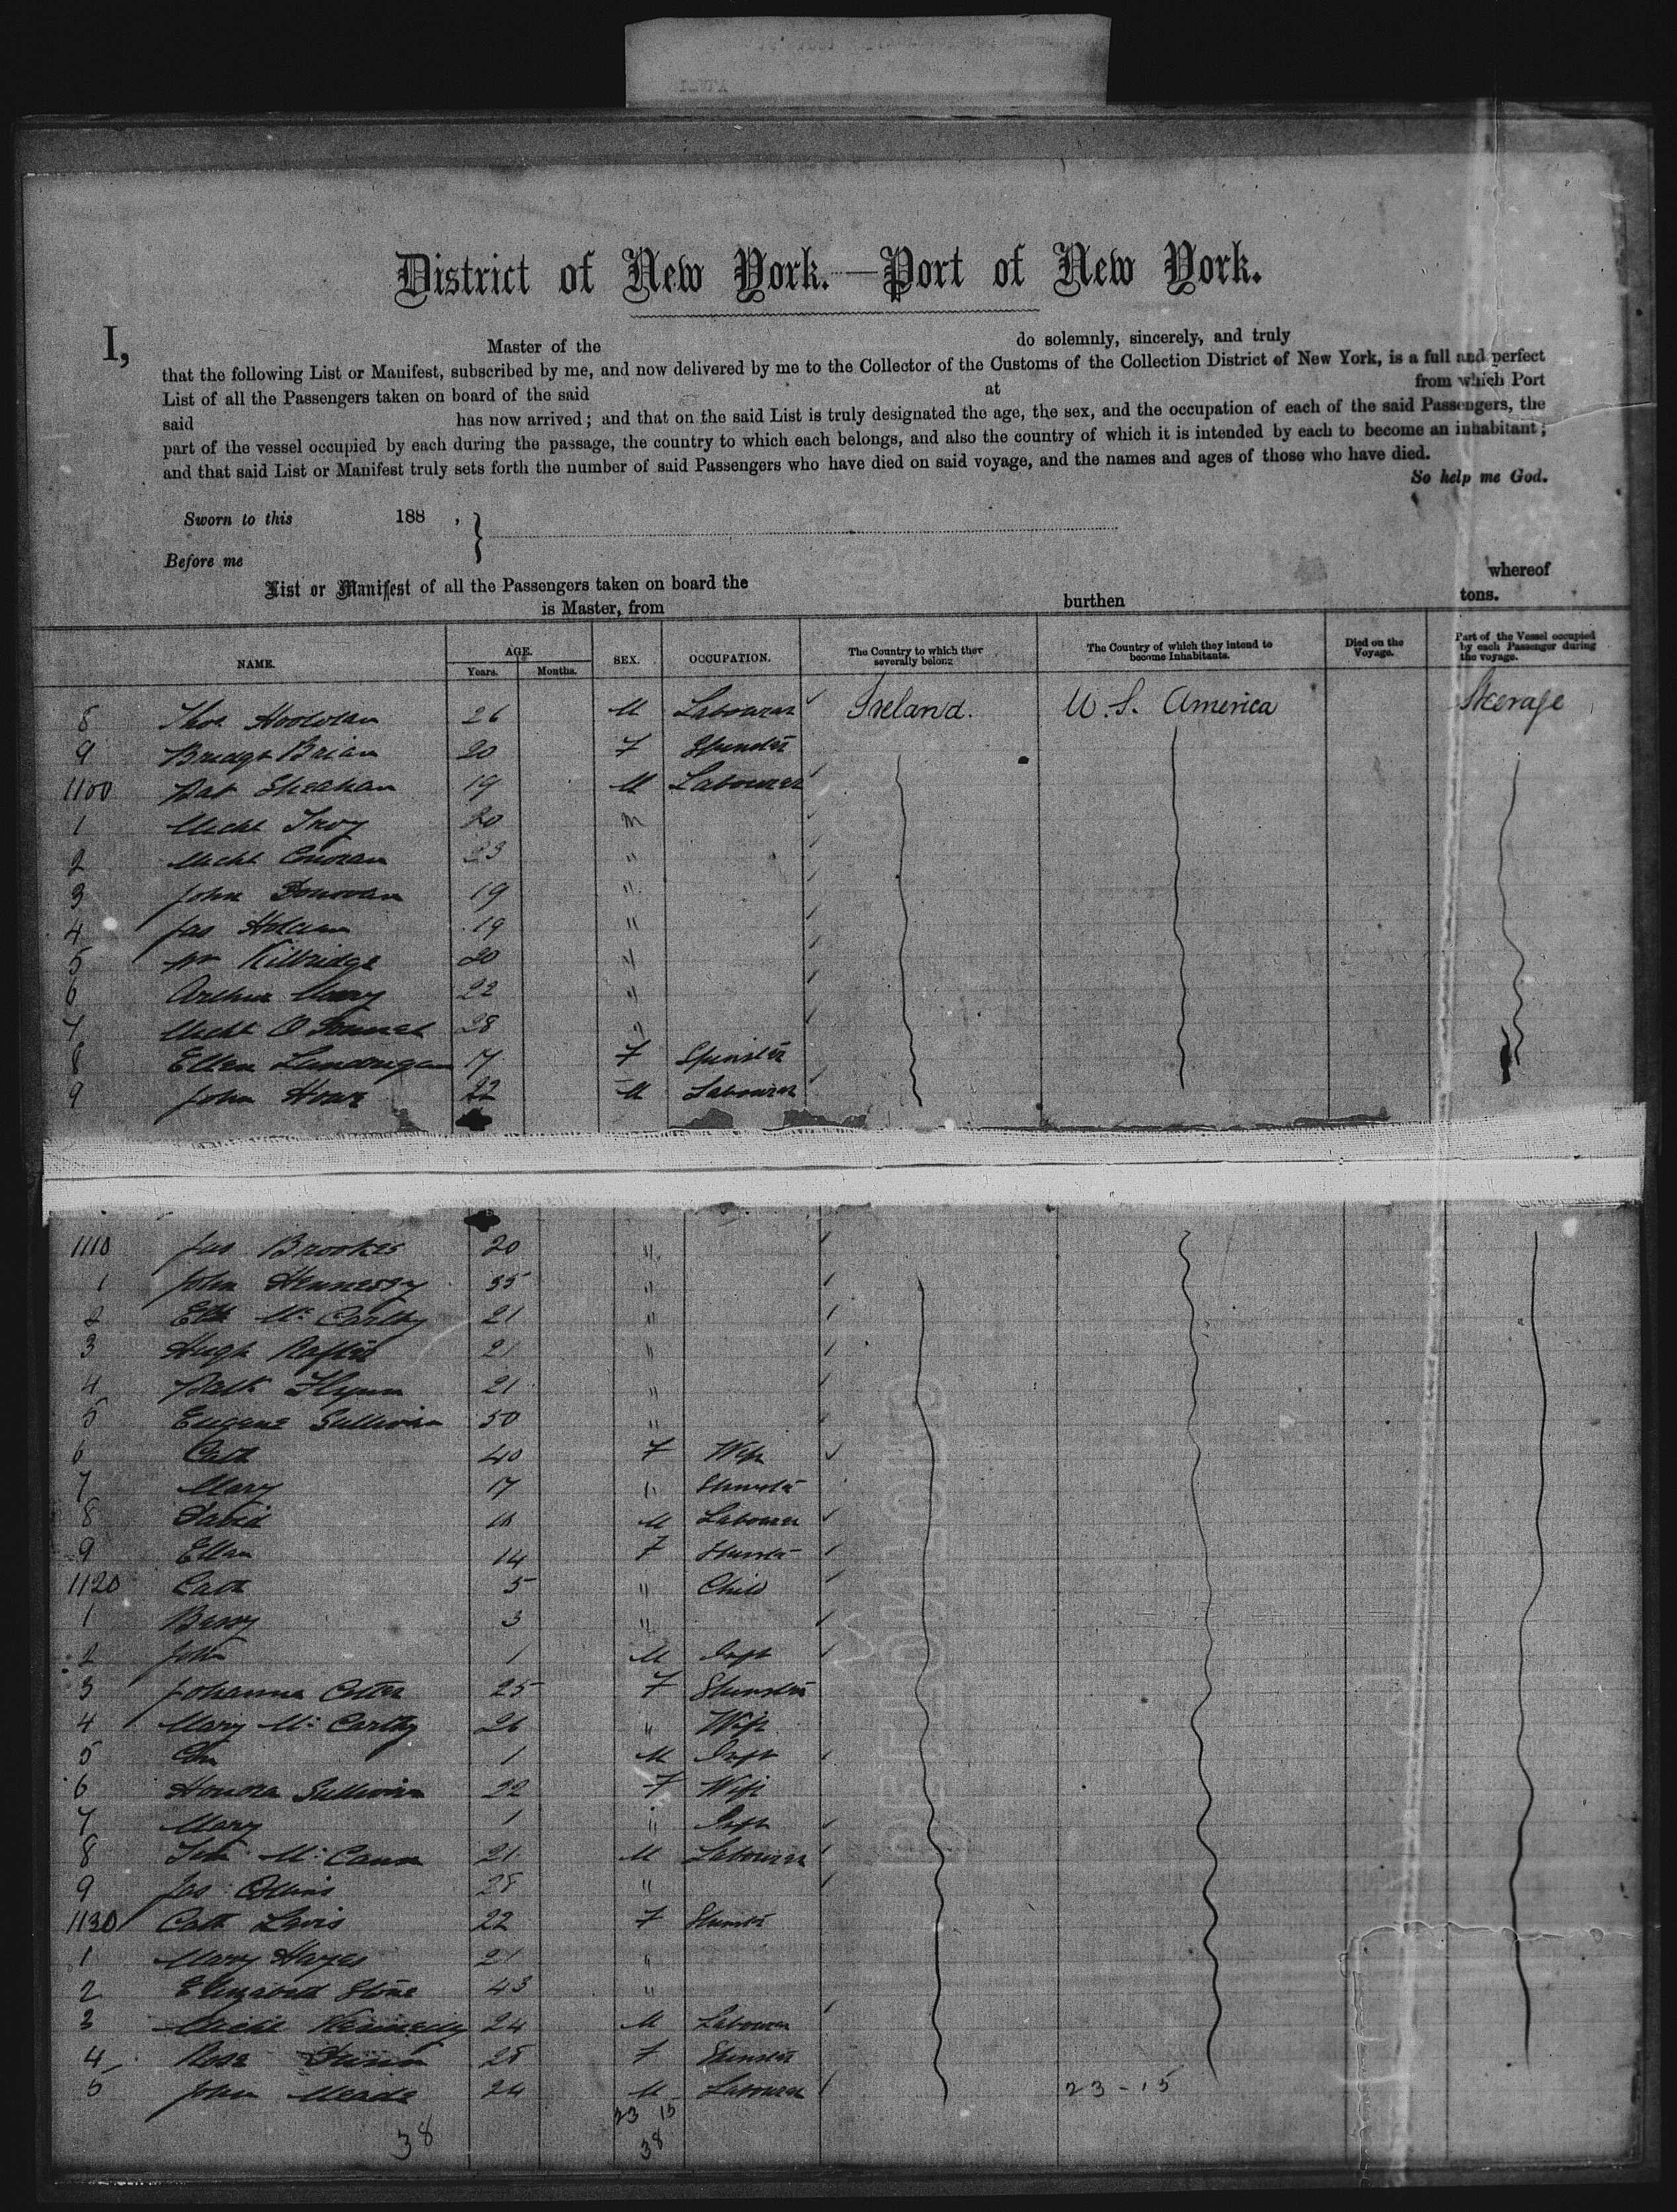 District of New York.—Port of New York.
I, Master of the do solemnly, sincerely, and truly
that the following List or Manifest, subscribed by me, and now delivered by me to the Collector of the Customs of the Collection District of New York, is a full and perfect
List of all the Passengers taken on board of the said at from which Port
said has now arrived; and that on the said List is truly designated the age, the sex, and the occupation of each of the said Passengers, the
part of the vessel occupied by each during the passage, the country to which each belongs, and also the country of which it is intended by each to become an inhabitant;
and that said List or Manifest truly sets forth the number of said Passengers who have died on said voyage, and the names and ages of those who have died.
So help me God.
Sworn to this 188 ,
Before me
List or Manifest of all the Passengers taken on board the whereof
is Master, from burthen tons.
NAME. AGE. Years. Months. SEX. OCCUPATION. The Country to which they severally belong The Country of which they intend to become Inhabitants. Died on the Voyage. Part of the Vessel occupied by each Passenger during the voyage.
8 Thos 26 M Labourer Ireland. U.S. America Steerage
9 Bridgt Brian 20 F Spinster
1100 Pat Sheahan 19 M Labourer
1 Michl Troy 20 M
2 Michl 23 "
3 John Donovan 19 "
4 Jas 19 "
5 Wm Kilbridge 20 "
6 Arthur 22 "
7 Michl O'Donnel 28 "
8 Ellen Landrigan 17 F Spinster
9 John Hoare 22 M Labourer
1110 Jas Brookes 20 "
1 John Hennessy 35 "
2 Mc Carthy 21 "
3 Hugh 21 "
4 Patk Flynn 21 "
5 Eugene Sullivan 50 "
6 Cath 40 F Wife
7 Mary 17 " Spinster
8 David M Labourer
9 Ellen 14 F Spinster
1120 Cath 5 " Child
1 Bessy 3 "
2 John 1 M Inft
3 Johanna Cotter 25 F Spinster
4 Mary Mc Carthy 26 " Wife
5 1 M Inft
6 Honora Sullivan 22 F Wife
7 Mary 1 " Inft
8 Mc Cann 21 M Labourer
9 Jas Collins 28 "
1130 Cath 22 F Spinster
1 Mary Hayes 21 "
2 Elizabeth Stone 43 "
3 Michl Kennedy 24 M Labourer
4 Rose 25 F Spinster
5 John Meade 24 M Labourer 23-15
23 15
38 38